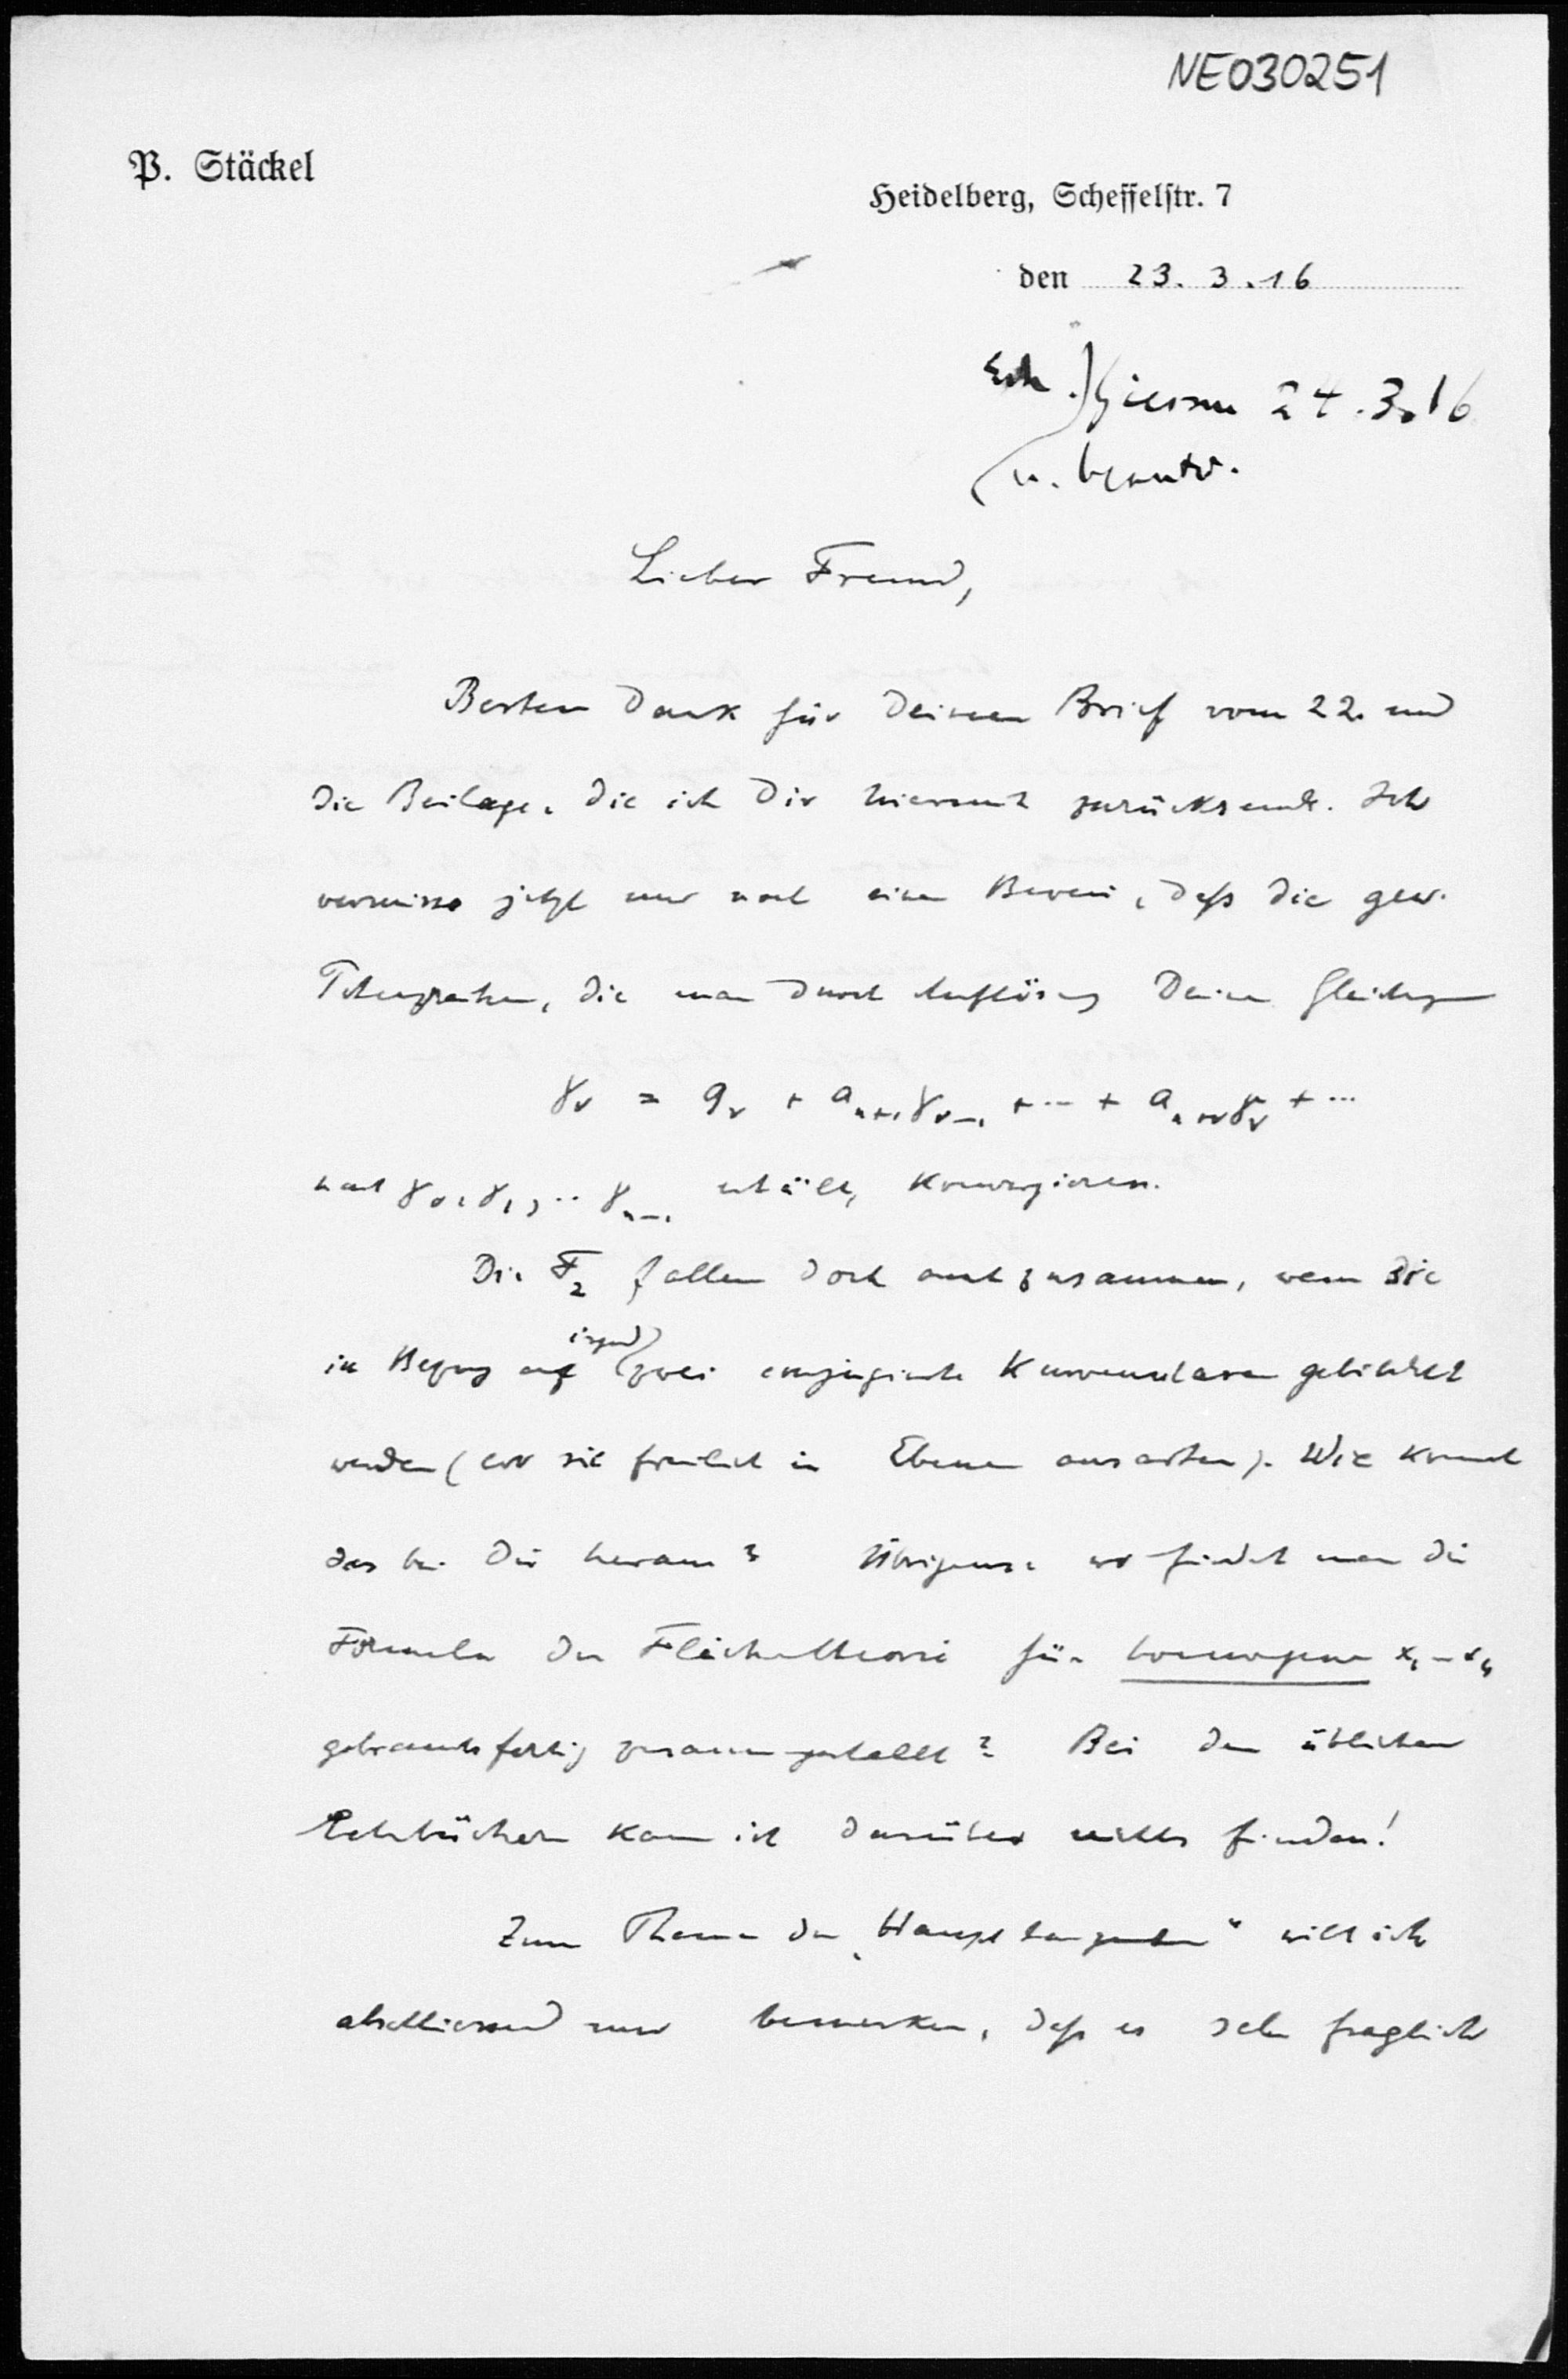 NE030251
P. Stäckel
Heidelberg, Scheffelstr. 7
den 23. 3. 16
Erh. Giessen 24.3.16
u. beantw.
Lieber Freund,
Besten Dank für Deinen Brief vom 22. und
die Beilage, die ich Dir hiermit zurücksende. Ich
vermisse jetzt nur noch einen Beweis, daß die gew.
Potenzreihen, die man durch Auflösung Deiner Gleichungen
γν = gν + an+1γν-1 + ··· + an+νγν + ···
nach γ0, γ1, ·· γn-1 erhält, konvergieren.
Die F2 fallen doch auch zusammen, wenn sie
in Bezug auf irgend zwei conjugierte Kurvenscharen gebildet
werden (wo sie freilich in Ebenen ausarten). Wie kommt
das bei Dir heraus? Übrigens: wo findet man die
Formeln der Flächentheorie für homogene x1 – x4
gebrauchsfertig zusammengestellt? Bei den üblichen
Lehrbüchern kann ich darüber nichts finden!
Zum Thema der „Haupttangenten“ will ich
abschliessend nur bemerken, daß es sehr fraglich